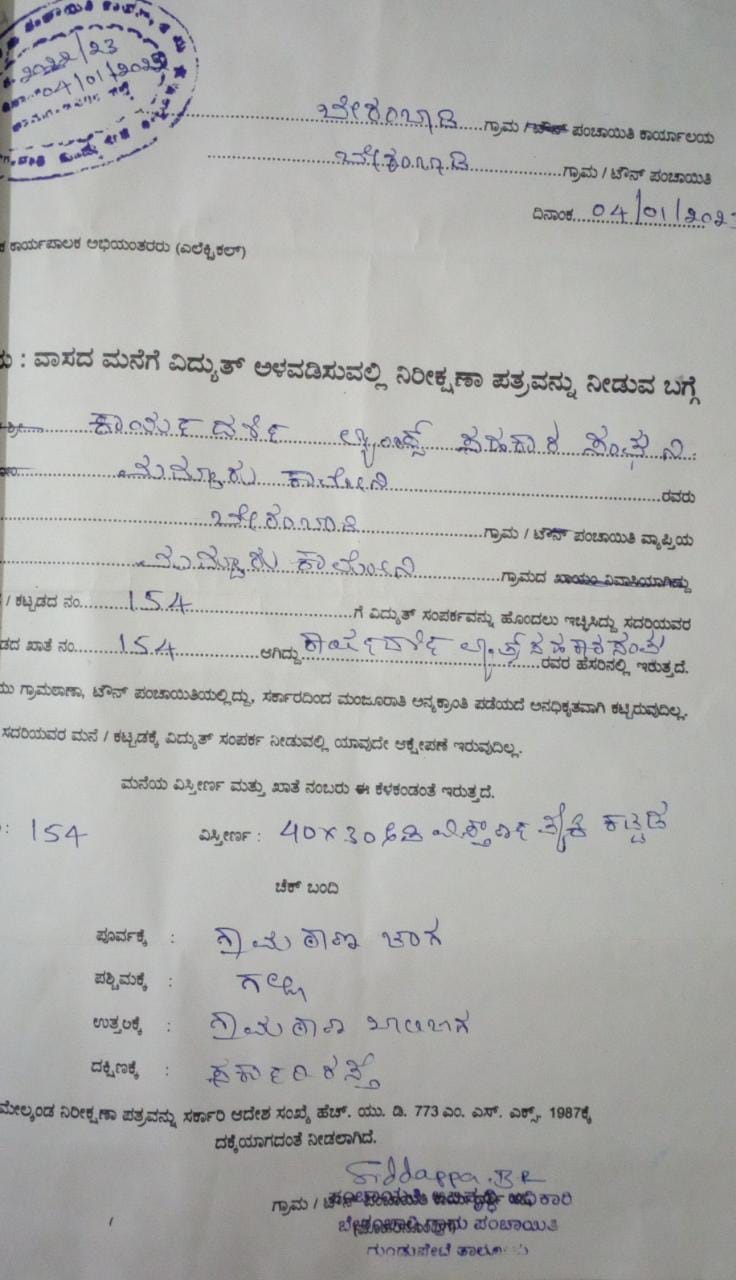 2022/23
04/01/2023
ಬೇರಂಬಾಡಿ ಗ್ರಾಮ / ಟೌನ್ ಪಂಚಾಯಿತಿ ಕಾರ್ಯಾಲಯ
ಬೇರಂಬಾಡಿ ಗ್ರಾಮ / ಟೌನ್ ಪಂಚಾಯಿತಿ
ದಿನಾಂಕ 04/01/202
ಕಾರ್ಯಪಾಲಕ ಅಭಿಯಂತರರು (ಎಲೆಕ್ಟ್ರಿಕಲ್)
: ವಾಸದ ಮನೆಗೆ ವಿದ್ಯುತ್ ಅಳವಡಿಸುವಲ್ಲಿ ನಿರೀಕ್ಷಣಾ ಪತ್ರವನ್ನು ನೀಡುವ ಬಗ್ಗೆ
ಶ್ರೀ ಕಾರ್ಯದರ್ಶಿ ಲ್ಯಾಂಪ್ಸ್ ಸಹಕಾರ ಸಂಘ ನಿ.
ಕಾಲೋನಿ ರವರು
ಬೇರಂಬಾಡಿ ಗ್ರಾಮ / ಟೌನ್ ಪಂಚಾಯಿತಿ ವ್ಯಾಪ್ತಿಯ
ಕಾಲೋನಿ ಗ್ರಾಮದ ಖಾಯಂ ನಿವಾಸಿಯಾಗಿದ್ದು
/ ಕಟ್ಟಡದ ನಂ. 154 ಗೆ ವಿದ್ಯುತ್ ಸಂಪರ್ಕವನ್ನು ಹೊಂದಲು ಇಚ್ಛಿಸಿದ್ದು ಸದರಿಯವರ
ಖಾತೆ ನಂ. 154 ಆಗಿದ್ದು ಕಾರ್ಯದರ್ಶಿ ಲ್ಯಾಂಪ್ಸ್ ಸಹಕಾರ ಸಂಘ ರವರ ಹೆಸರಿನಲ್ಲಿ ಇರುತ್ತದೆ.
ಗ್ರಾಮಠಾಣಾ, ಟೌನ್ ಪಂಚಾಯಿತಿಯಲ್ಲಿದ್ದು, ಸರ್ಕಾರದಿಂದ ಮಂಜೂರಾತಿ ಅನ್ಯಕ್ರಾಂತಿ ಪಡೆಯದೆ ಅನಧಿಕೃತವಾಗಿ ಕಟ್ಟಿರುವುದಿಲ್ಲ.
ಸದರಿಯವರ ಮನೆ / ಕಟ್ಟಡಕ್ಕೆ ವಿದ್ಯುತ್ ಸಂಪರ್ಕ ನೀಡುವಲ್ಲಿ ಯಾವುದೇ ಆಕ್ಷೇಪಣೆ ಇರುವುದಿಲ್ಲ.
ಮನೆಯ ವಿಸ್ತೀರ್ಣ ಮತ್ತು ಖಾತೆ ನಂಬರು ಈ ಕೆಳಕಂಡಂತೆ ಇರುತ್ತದೆ.
: 154 ವಿಸ್ತೀರ್ಣ : 40x30 ಅಡಿ ವಿಸ್ತೀರ್ಣ ಪೈಕಿ ಕಟ್ಟಡ
ಚೆಕ್ ಬಂದಿ
ಪೂರ್ವಕ್ಕೆ : ಗ್ರಾಮಠಾಣಾ ಜಾಗ
ಪಶ್ಚಿಮಕ್ಕೆ : ಗಲ್ಲಿ
ಉತ್ತರಕ್ಕೆ : ಗ್ರಾಮಠಾಣಾ ಖಾಲಿಜಾಗ
ದಕ್ಷಿಣಕ್ಕೆ : ಸರ್ಕಾರಿ ರಸ್ತೆ
ಮೇಲ್ಕಂಡ ನಿರೀಕ್ಷಣಾ ಪತ್ರವನ್ನು ಸರ್ಕಾರಿ ಆದೇಶ ಸಂಖ್ಯೆ ಹೆಚ್. ಯು. ಡಿ. 773 ಎಂ. ಎಸ್. ಎಕ್ಸ್. 1987ಕ್ಕೆ
ದಕ್ಕೆಯಾಗದಂತೆ ನೀಡಲಾಗಿದೆ.
Siddappa.BR
ಗ್ರಾಮ / ಟೌನ್ ಪಂಚಾಯಿತಿ
ಪಂಚಾಯಿತಿ ಅಭಿವೃದ್ಧಿ ಅಧಿಕಾರಿ
ಬೇರಂಬಾಡಿ ಗ್ರಾಮ ಪಂಚಾಯಿತಿ
ಗುಂಡ್ಲುಪೇಟೆ ತಾಲ್ಲೂಕು